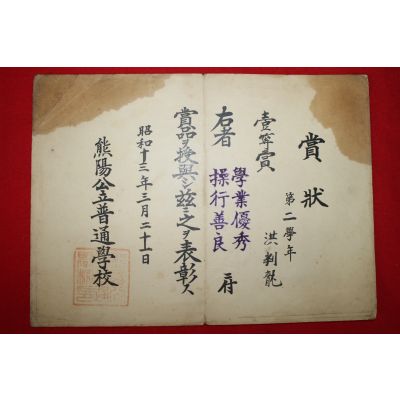 賞狀
第二學年
洪判龍
壹等賞
右者
學業優秀
操行善良
ニ付
賞品ヲ授與シ茲ニ之ヲ表彰ス
昭和十三年三月二十一日
熊陽公立普通學校